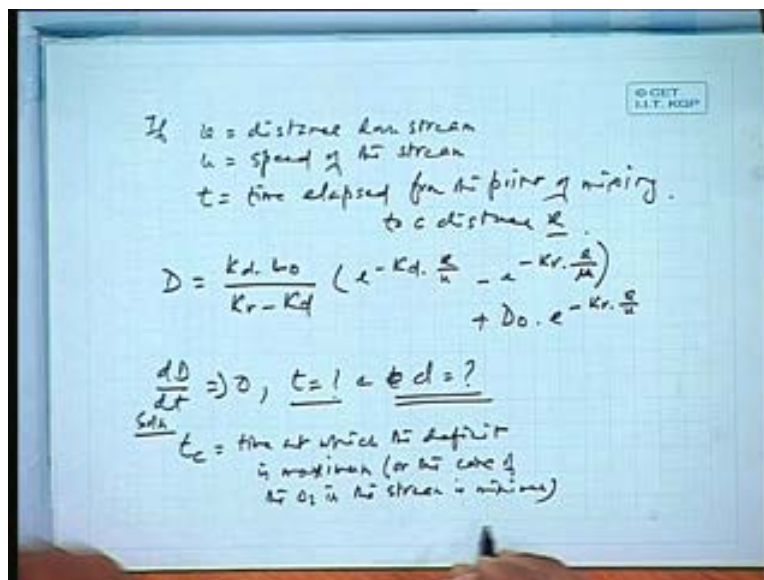 © CET
I.I.T. KGP
If x = distance down stream
u = speed of the stream
t = time elapsed from the point of mixing
to a distance x.
D = Kd. Lo / Kr - Kd (e^-Kd. x/u - e^-Kr. x/u)
+ Do. e^-Kr. x/u
dD/dt => 0, t = ? d = ?
Soln
tc = time at which the deficit
is maximum (or the conc of
the O2 in the stream is minimum)